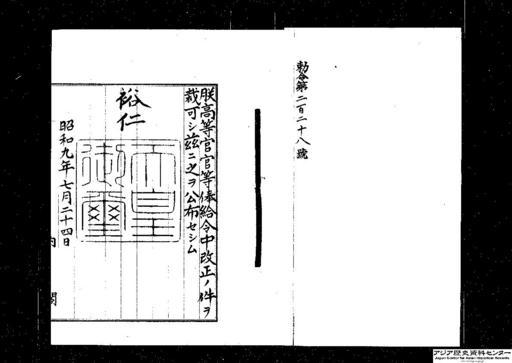 勅令第二百二十八號
朕高等官官等俸給令中改正ノ件ヲ
裁可シ茲ニ之ヲ公布セシム
裕仁
天皇
御璽
昭和九年七月二十四日
内閣
アジア歴史資料センター
Japan Center for Asian Historical Records